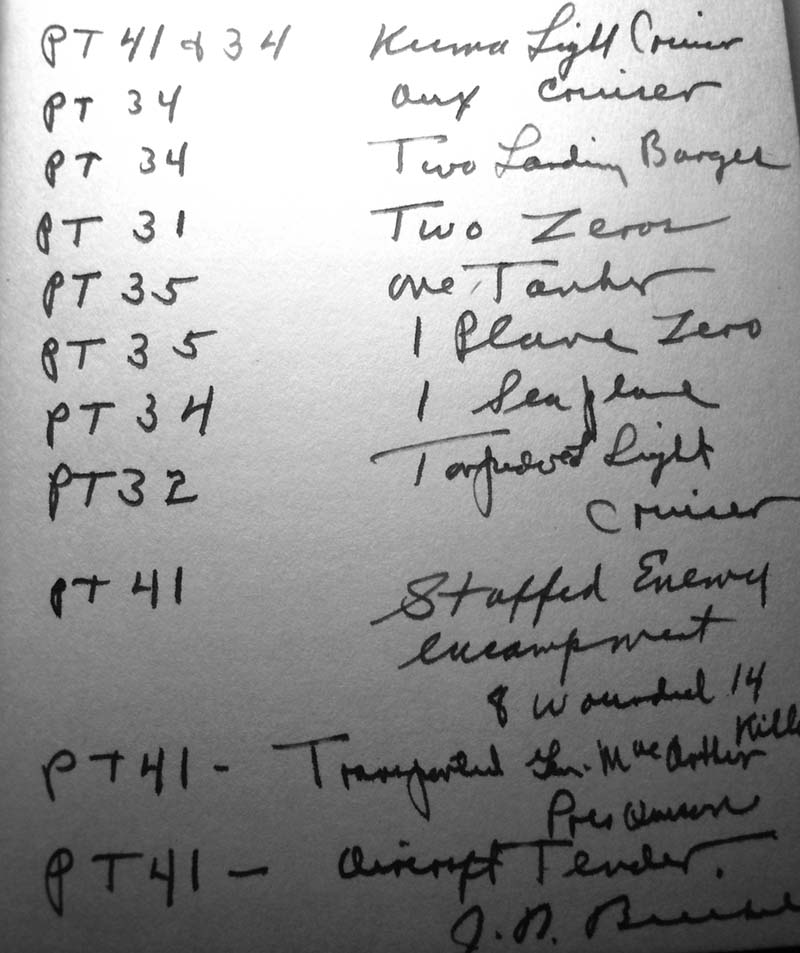 PT 41 & 34 Kuma Light Cruiser
PT 34 aux cruiser
PT 34 Two Landing Barges
PT 31 Two Zeros
PT 35 one Tanker
PT 35 1 Plane Zero
PT 34 1 Sea plane
PT 32 Torpedoed Light
Cruiser
PT 41 Staffed Enemy
encampment
8 Wounded 14
Kill
PT 41 - Transported Gen. MacArthur
Pres
PT 41 - aircraft Tender.
J. D.